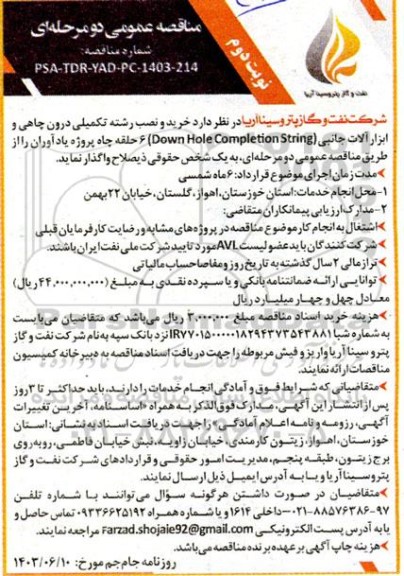 مناقصه عمومی دو مرحله‌ای
شماره مناقصه:
PSA-TDR-YAD-PC-1403-214
نوبت دوم
نفت و گاز پتروسینا آریا
شرکت نفت و گاز پتروسینا آریا در نظر دارد خرید و نصب رشته تکمیلی درون چاهی و
ابزار آلات جانبی (Down Hole Completion String) ۶ حلقه چاه پروژه یادآوران را از
طریق مناقصه عمومی دو مرحله‌ای، به یک شخص حقوقی ذیصلاح واگذار نماید.
مدت زمان اجرای موضوع قرارداد: ۶ ماه شمسی
۱- محل انجام خدمات: استان خوزستان، اهواز، گلستان، خیابان ۲۲ بهمن
۲- مدارک ارزیابی پیمانکاران متقاضی:
اشتغال به انجام کار موضوع مناقصه در پروژه‌های مشابه و رضایت کارفرمایان قبلی
شرکت کنندگان باید عضو لیست AVL مورد تایید شرکت ملی نفت ایران باشند.
تراز مالی ۲ سال گذشته به تاریخ روز و مفاصا حساب مالیاتی
توانایی ارائه ضمانتنامه بانکی و یا سپرده نقدی به مبلغ (۴۴,۰۰۰,۰۰۰,۰۰۰ ریال)
معادل چهل و چهار میلیارد ریال
هزینه خرید اسناد مناقصه مبلغ ۳,۰۰۰,۰۰۰ ریال می‌باشد که متقاضیان می‌بایست
به شماره شبا نزد بانک سپه به نام شرکت نفت و گاز
پتروسینا آریا واریز و فیش مربوطه را جهت دریافت اسناد مناقصه به دبیرخانه کمیسیون
مناقصات ارائه نمایند.
متقاضیانی که شرایط فوق و آمادگی انجام خدمات را دارند، باید حداکثر تا ۳ روز
پس از انتشار این آگهی، مدارک فوق‌الذکر به همراه «اساسنامه، آخرین تغییرات
آگهی، رزومه و نامه اعلام آمادگی» را جهت دریافت اسناد به نشانی: استان
خوزستان، اهواز، زیتون کارمندی، خیابان زاویه، نبش خیابان فاطمی، روبه‌روی
برج زیتون، طبقه پنجم، مدیریت امور حقوقی و قراردادهای شرکت نفت و گاز
پتروسینا آریا و یا به آدرس ایمیل ذیل ارسال نمایند.
متقاضیان در صورت داشتن هرگونه سؤال می‌توانند با شماره تلفن
۰۲۱-۸۸۵۷۶۳۸۶-۹۷ داخلی ۱۶۱۴ و یا شماره همراه ۰۹۳۳۶۶۲۵۱۹۲ تماس حاصل و
یا به آدرس پست الکترونیکی Farzad.shojaie92@gmail.com مراجعه نمایند.
هزینه چاپ آگهی بر عهده برنده مناقصه می‌باشد.
روزنامه جام جم مورخ: ۱۴۰۳/۰۶/۱۰